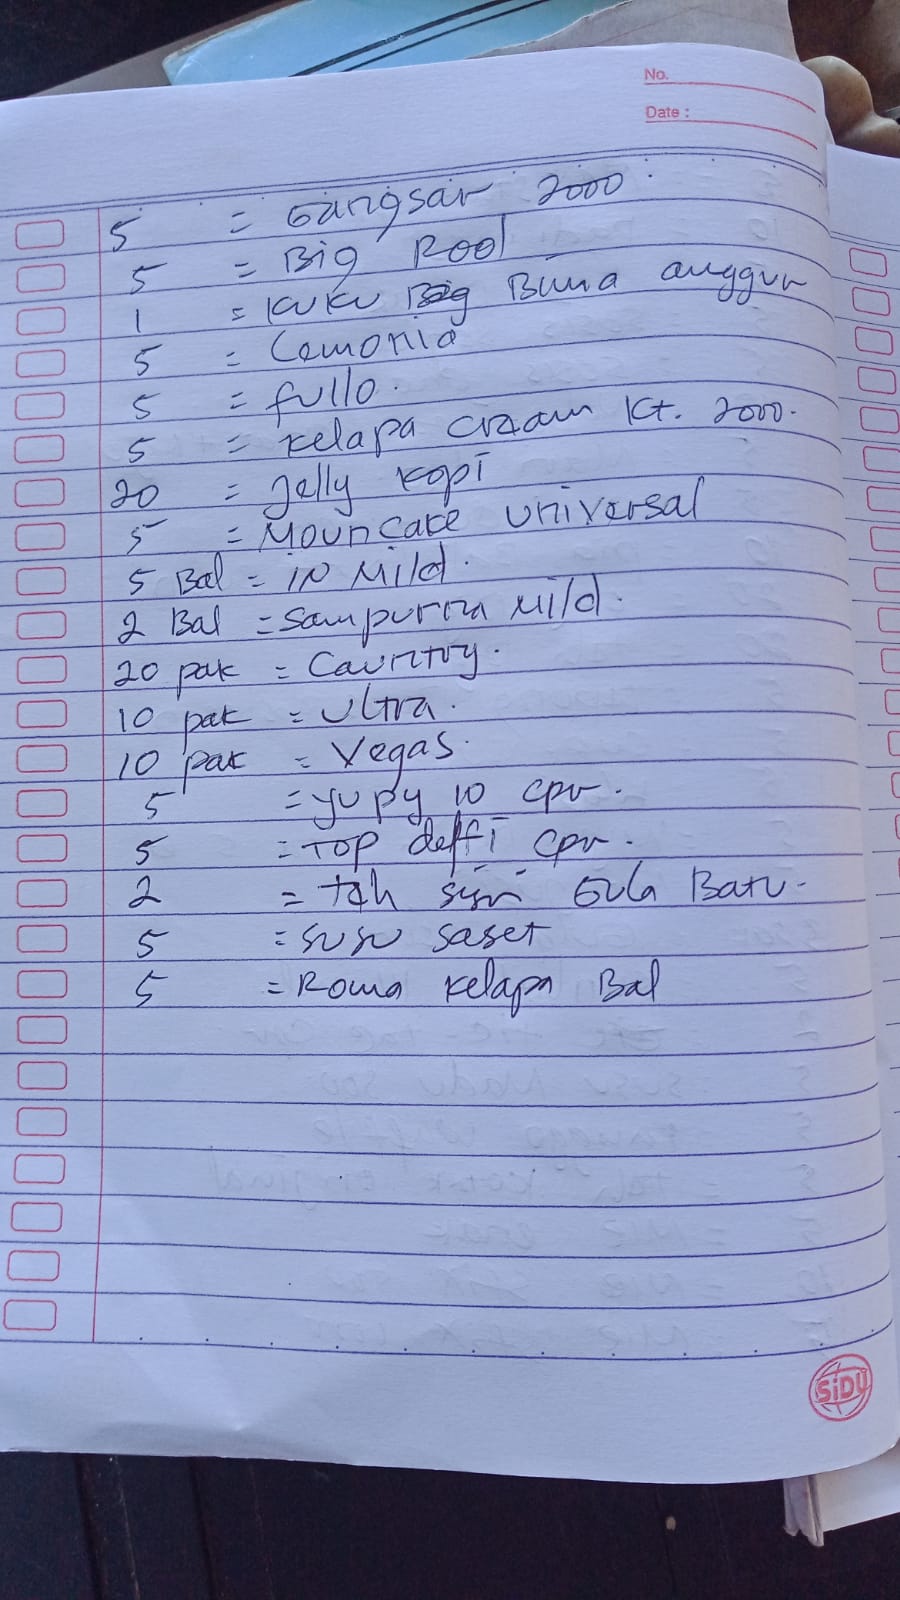 No.
Date :
5 = Gangsar 2000.
5 = Big Rool
1 = KUKU Big Bima anggur
5 = Lemonia
5 = fullo.
5 = Kelapa cream Kt. 2000.
20 = Jelly kopi
5 = Mouncake universal
5 Bal = IN Mild.
2 Bal = Sampurna Mild.
20 pak = Cauntry.
10 pak = Ultra.
10 pak = Vegas.
5 = yupy 10 cpr.
5 = TOP delfi cpr.
2 = teh sisri Gula Batu.
5 = susu saset
5 = Roma kelapa Bal
SiDU